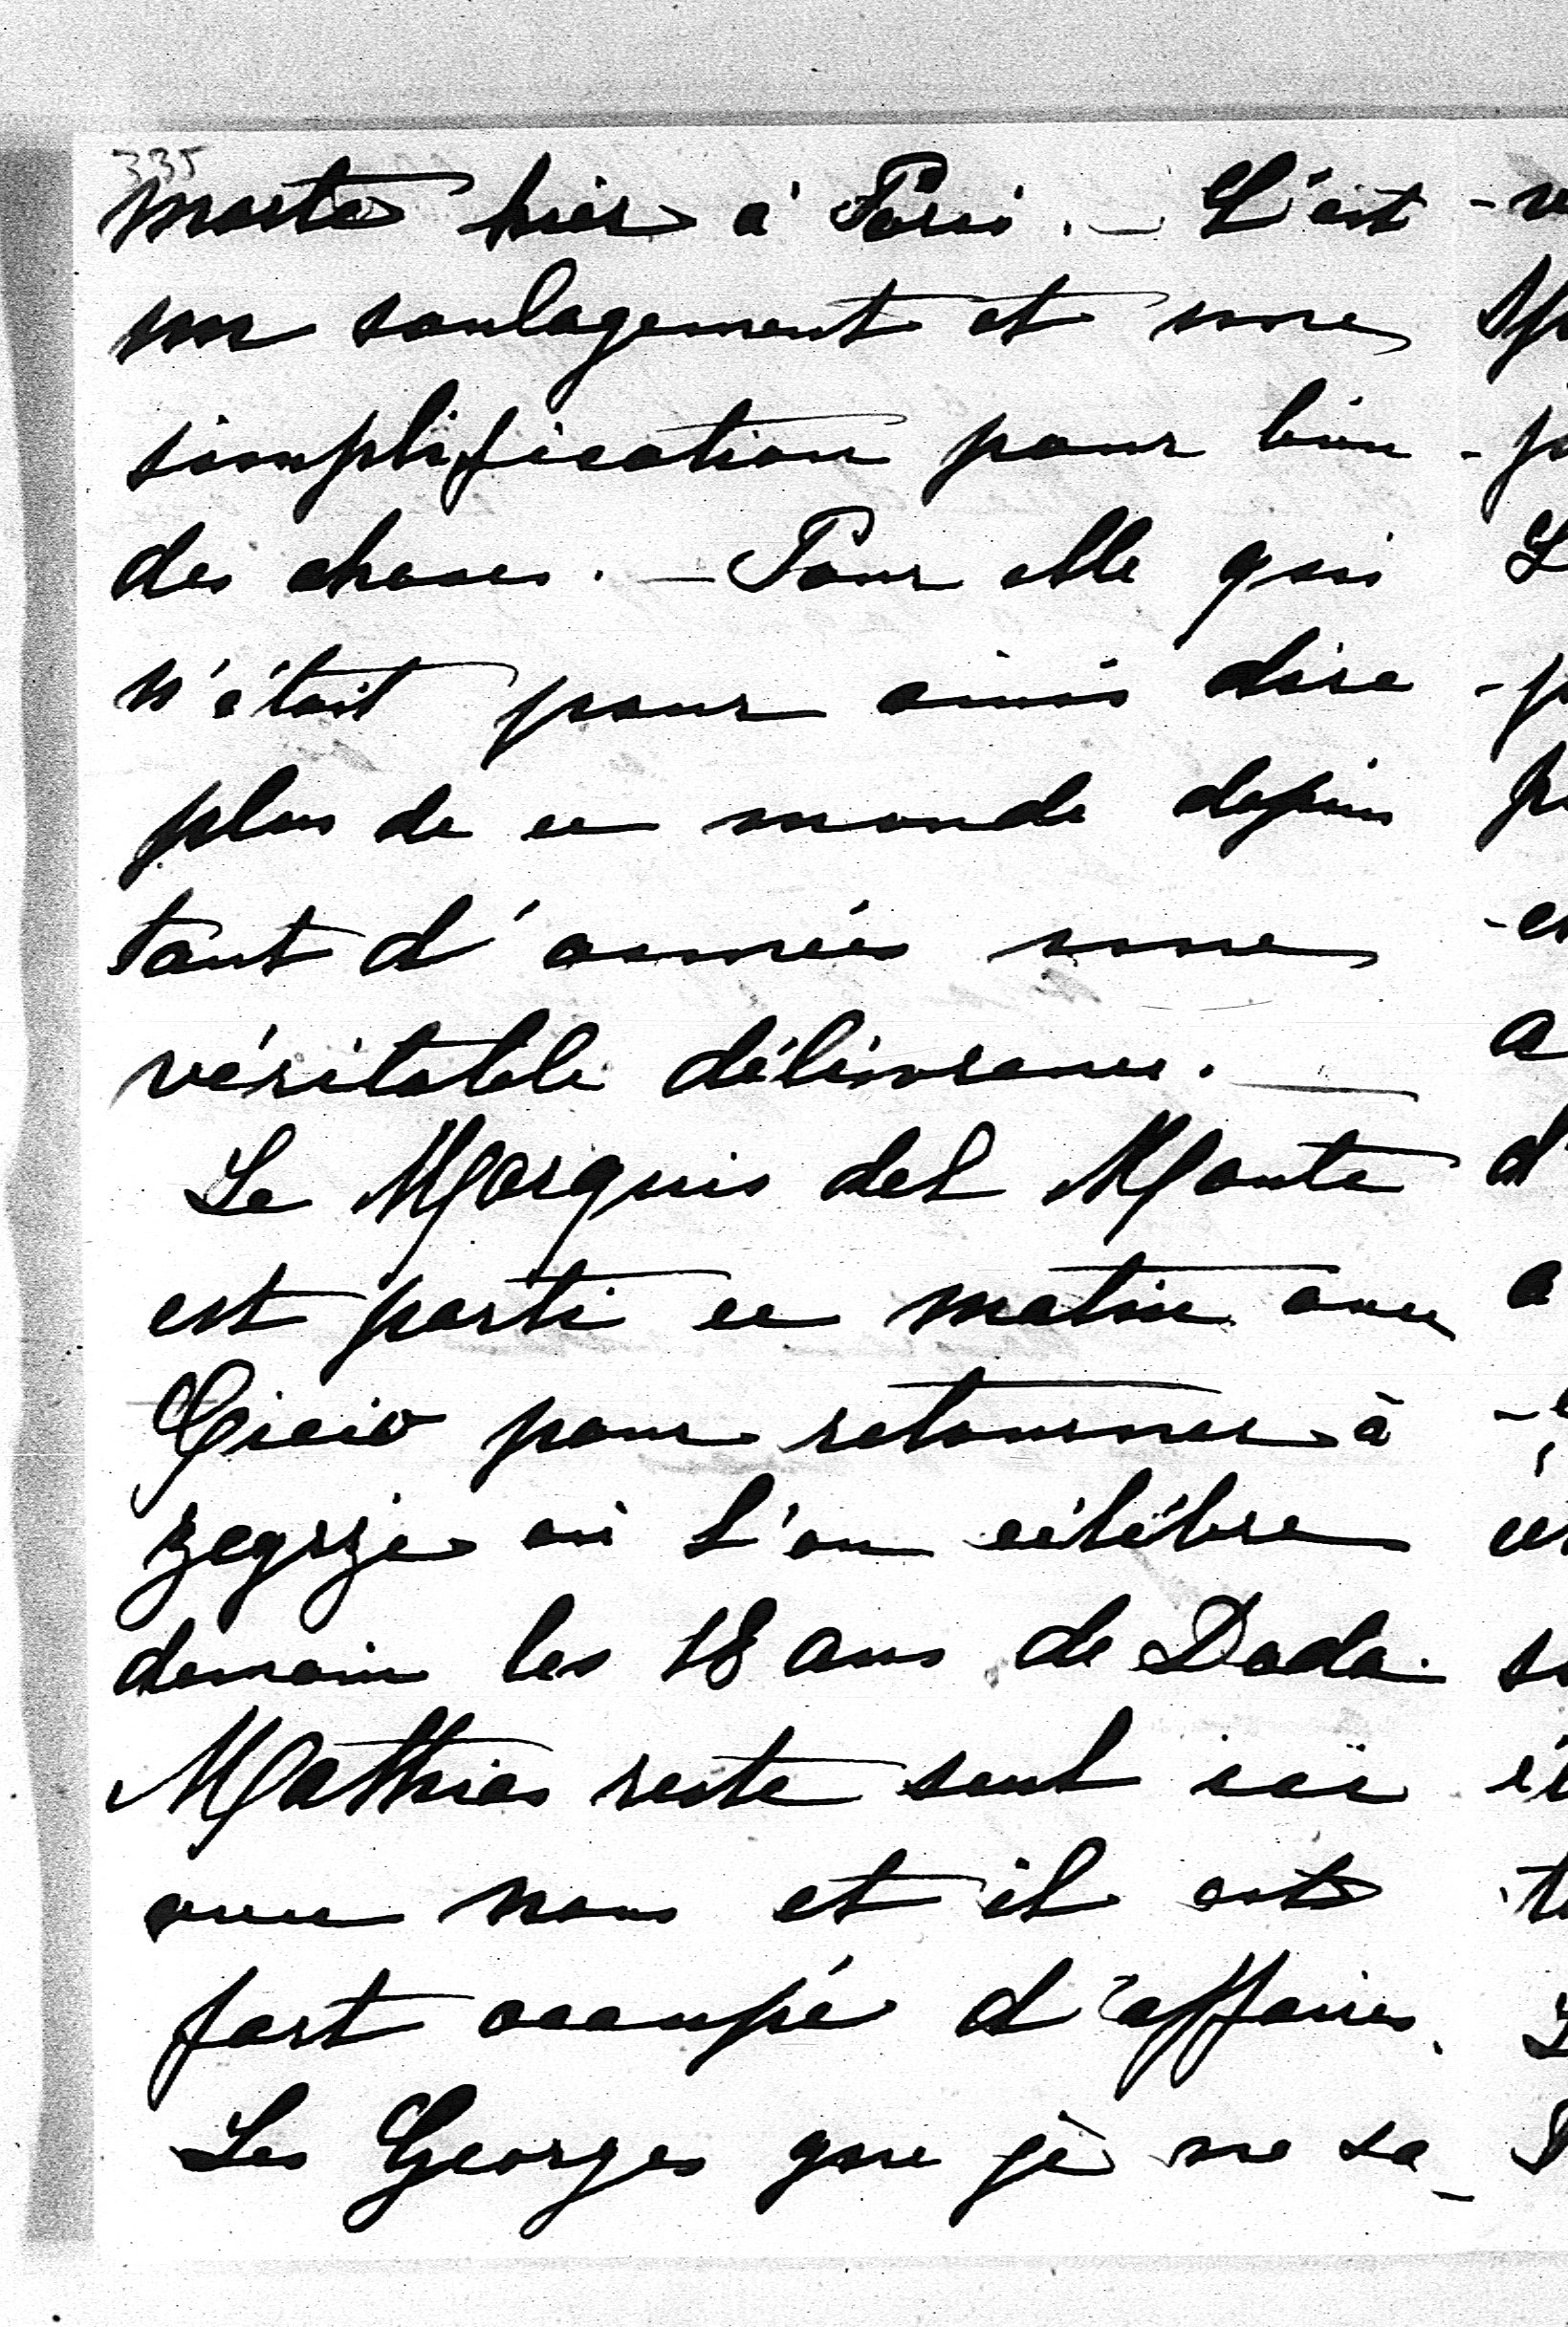 335
morte hier à Paris. — C'est
un soulagement et une
simplification pour bien
des choses. — Pour elle qui
n'était pour ainsi dire
plus de ce monde depuis
tant d'années une
véritable délivrance. —
Le Marquis del Monte
est parti ce matin avec
Gicio pour retourner à
Zegrze où l'on célèbre
demain les 18 ans de Dada.
Mathias reste seul ici
avec nous et il est
fort occupé d'affaires.
Les Georges que je ne sa-